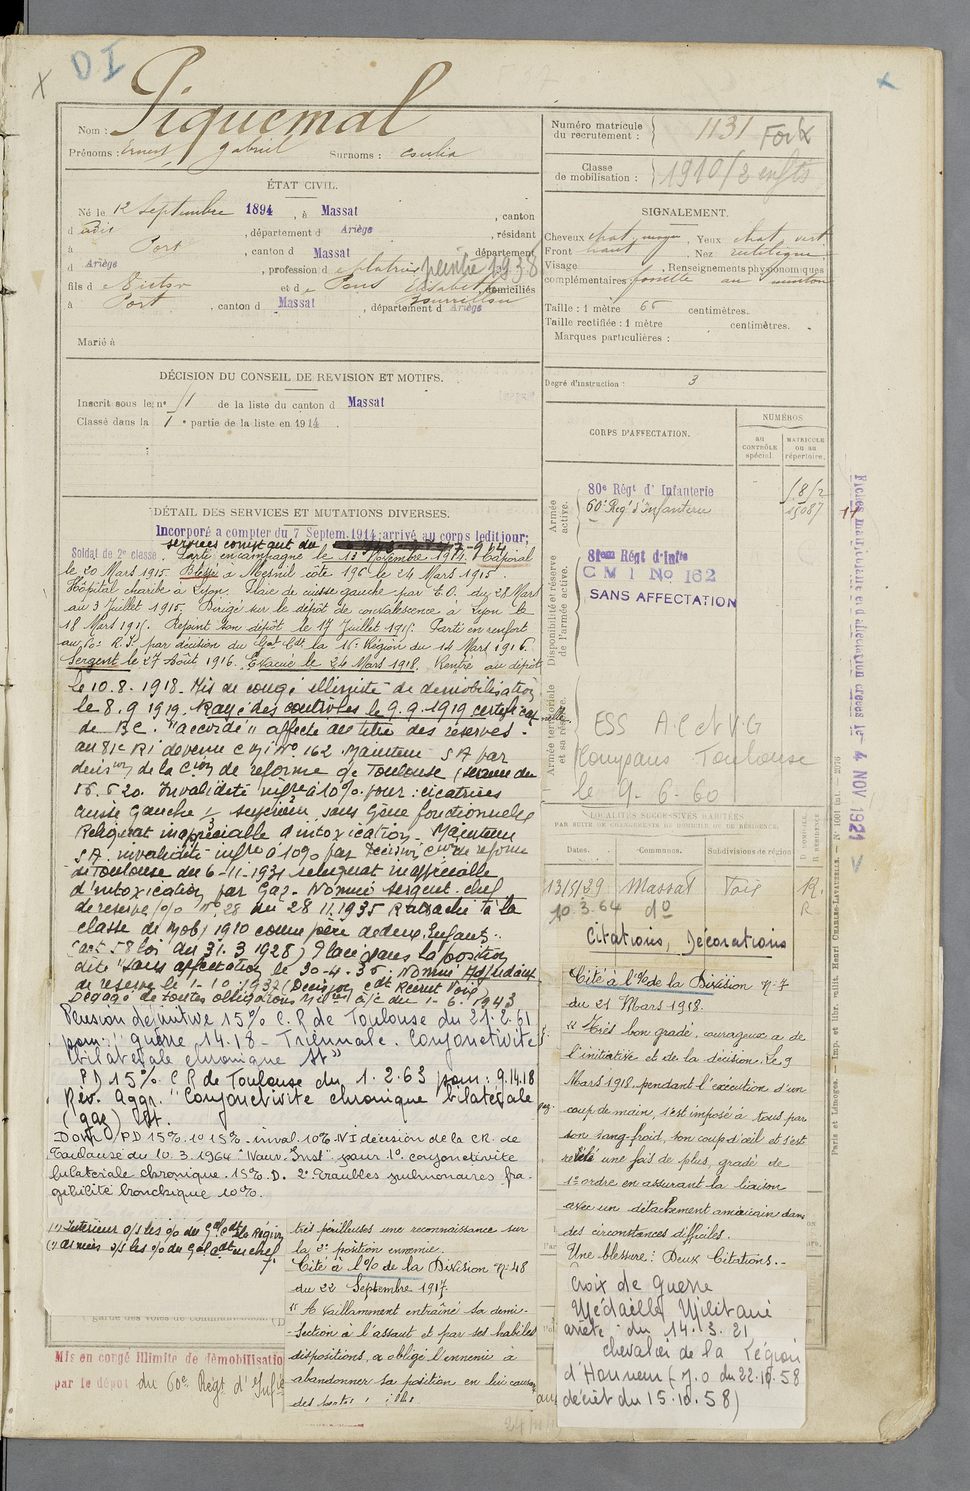 DI
Piquemal
Nom :
Prénoms : Ernest Gabriel Surnoms :
ÉTAT CIVIL.
Né le 12 Septembre 1894, à Massat, canton
d département d Ariège, résidant
à Port, canton d Massat, département
d Ariège, profession d Platrier peintre 1938
fils d e Victor et d e Pons Elisabeth, domiciliés
à Port, canton d Massat, département d Ariège
Marié à
DÉCISION DU CONSEIL DE REVISION ET MOTIFS.
Inscrit sous le n° 51 de la liste du canton d Massat
Classé dans la 1e partie de la liste en 1914.
DÉTAIL DES SERVICES ET MUTATIONS DIVERSES.
Incorporé a compter du 7 Septem. 1914; arrivé au corps ledit jour;
services comptant du
Soldat de 2e classe. Parti en campagne le 13 Novembre 1914. Caporal
le 20 Mars 1915. Blessé à Mesnil côte 196 le 24 Mars 1915.
Hôpital charité à Lyon. Plaie de cuisse gauche par E.O. du 28 Mars
au 3 Juillet 1915. Dirigé sur le dépôt de convalescence à Lyon le
18 Mars 1915. Rejoint son dépôt le 17 Juillet 1915. Parti en renfort
au 60e R.I. par décision du Gal Ct la 16e Région du 14 Mars 1916.
Sergent le 27 Août 1916. Evacué le 24 Mars 1918. Rentré au dépôt
le 10.8.1918. Mis en congé illimité de démobilisation
le 8.9.1919. Rayé des contrôles le 9.9.1919 certificat
de B.C. "accordé" affecté au titre des réserves.
au 81e RI devenu CMI N° 162. Maintenu S A par
décision de la Cion de réforme de Toulouse (séance du
Invalidité infre à 10% pour : cicatrices
cuisse Gauche 1/3 supérieur sans gêne fonctionnelle
Reliquat inappréciable d'intoxication - Maintenu
S A. invalidité infre à 10% par décision Cion de réforme
de Toulouse du 6-11-1931 reliquat inappréciable
d'intoxication par Gaz - Nommé Sergent-chef
de réserve du 28.11.1935 Rattaché à la
classe de Mob 1910 comme père de deux Enfants.
(art 58 loi du 31.3.1928) Placé dans la position
dite "sans affectation" le 20-4-36. Nommé Adjudant
de réserve le 1-10-1937 (Décision Cdt Recrut Foix)
Dégagé de toutes obligations milres à/c du 1-6-1943
Pension définitive 15% C.R de Toulouse du 21.2.61
pour : "guerre 14.18 - Triennale. Conjonctivite
bilatérale chronique St"
PD 15% C R de Toulouse du 1.2.63 pour : 9.14.18
Rév. Aggr. "Conjonctivite chronique bilatérale
(gaz) St.
PD 15% 1° 15% - inval. 10% NI décision de la CR. de
Toulouse du 10.3.1964 "Nouv. Inst" pour 1° conjonctivite
bilatérale chronique. 15% D. 2° Troubles pulmonaires fra-
gibilité bronchique 10%.
(1) Intérieur o/s les o/o du Gal Cdt la Région
(2) Armées o/s les o/o du Gal Cdt en chef
Mis en congé illimité de démobilisatio
par le dépôt du 60e Régt d'Infie
très périlleuses une reconnaissance sur
la 2e position ennemie.
Cité à l'O/ de la Division N° 48
du 22 Septembre 1917.
"A vaillamment entraîné sa demi-
-section à l'assaut et par ses habiles
dispositions, a obligé l'ennemi à
abandonner sa position en lui causan
des pertes
Numéro matricule du recrutement : 1131 Foix
Classe de mobilisation : 1910 (2 enfts
SIGNALEMENT.
Cheveux chat. moyen, Yeux chat. vert
Front haut, Nez rectiligne
Visage , Renseignements physionomiques
complémentaires fossette au menton
Taille : 1 mètre 65 centimètres.
Taille rectifiée : 1 mètre centimètres.
Marques particulières :
Degré d'instruction : 3
CORPS D'AFFECTATION.
NUMÉROS
au CONTRÔLE spécial.
MATRICULE ou au répertoire.
Armée active.
80e Régt d'Infanterie
60e Rég d'Infanterie
15087
Disponibilité et réserve de l'armée active.
81eme Régt d'Infie
CMI No 162
SANS AFFECTATION
Armée territoriale et sa réserve.
ESS A.C et V.G
Toulouse
le 9-6-60
LOCALITÉS SUCCESSIVES HABITÉES
PAR SUITE DE CHANGEMENTS DE DOMICILE OU DE RÉSIDENCE.
Dates. Communes. Subdivisions de région D DOMICILE. R RÉSIDENCE
13/5/39 Massat Foix R.
10.3.64 d° R
Citations, Décorations
Cité à l'O/ de la Division N° 7
du 21 Mars 1918.
"Très bon gradé, courageux a de
l'initiative et de la décision. Le 9
Mars 1918, pendant l'exécution d'un
coup de main, s'est imposé à tous par
son sang-froid, son coup d'œil et s'est
révélé une fois de plus, gradé de
1er ordre en assurant la liaison
avec un détachement américain dans
des circonstances difficiles.
Une blessure : Deux Citations.-
Croix de guerre
Médaille Militaire
arrêté du 14.3.21
chevalier de la Légion
d'Honneur (J.O du 22.10.58
décret du 15.10.58)
Fiches matricules et d'affectation créées le 4 NOV 1921
Paris et Limoges. — Imp. et libr. milit. Henri CHARLES-LAVAUZELLE.